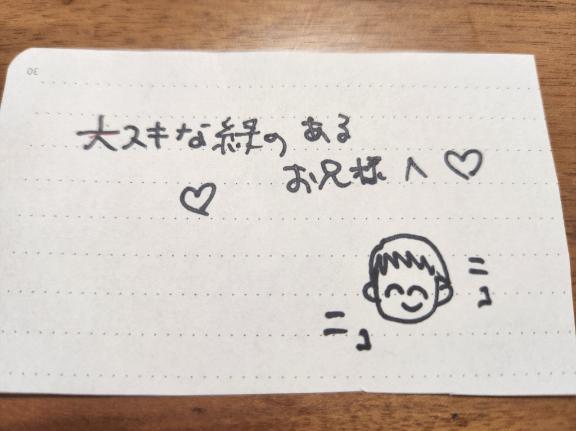 30
大スキな縁のある
お兄様へ♡
♡
ニコ
ニコ